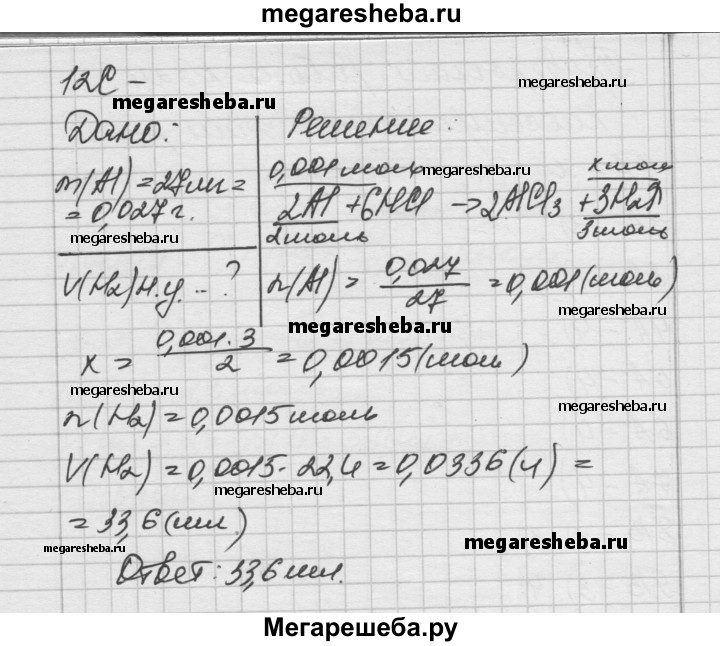 megaresheba.ru
12C –
megaresheba.ru
megaresheba.ru
Дано:
Решение:
m(Al) = 27 мг =
= 0,027 г.
megaresheba.ru
V(H₂) н.у. – ?
0,001 моль
megaresheba.ru
x моль
2Al + 6HCl → 2AlCl₃ + 3H₂↑
2 моль
3 моль
megaresheba.ru
n(Al) = 0,027/27 = 0,001 (моль)
megaresheba.ru
megaresheba.ru
x = 0,001·3/2 = 0,0015 (моль)
megaresheba.ru
megaresheba.ru
n(H₂) = 0,0015 моль
V(H₂) = 0,0015 · 22,4 = 0,0336 (л) =
megaresheba.ru
= 33,6 (мл.)
megaresheba.ru
megaresheba.ru
Ответ: 33,6 мл.
Мегарешеба.ру